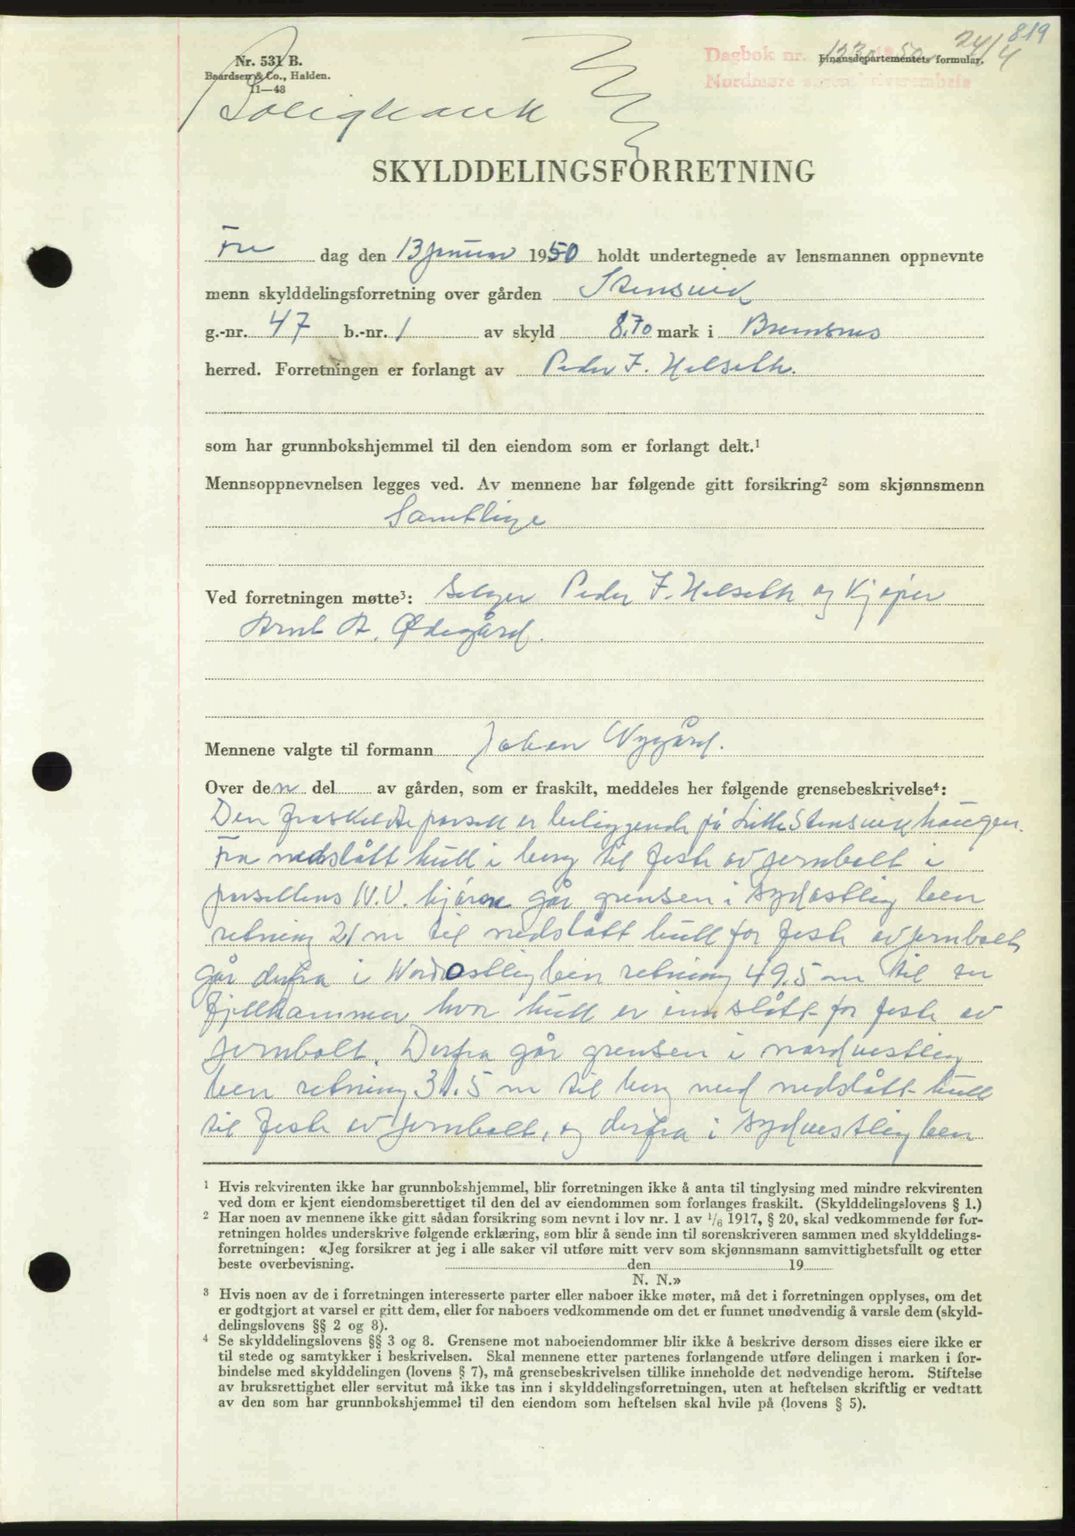 819
24/4
Dagbok nr. 1231 1950
Finansdepartementets formular.
Nordmøre sorenskriverembete
Nr. 531 B.
Baardsen & Co., Halden.
11—48
Boligbank
SKYLDDELINGSFORRETNING
Fre dag den 13 januar 1950 holdt undertegnede av lensmannen oppnevnte
menn skylddelingsforretning over gården Stensvik
g.-nr. 47 b.-nr. 1 av skyld 8,70 mark i Bremsnes
herred. Forretningen er forlangt av Peder F. Helseth.
som har grunnbokshjemmel til den eiendom som er forlangt delt.¹
Mennsoppnevnelsen legges ved. Av mennene har følgende gitt forsikring² som skjønnsmenn
Samtlige
Ved forretningen møtte³: Selger Peder F. Helseth og Kjøper
Arnt A. Ødegård.
Mennene valgte til formann Johan Nygård.
Over den del av gården, som er fraskilt, meddeles her følgende grensebeskrivelse⁴:
Den fraskildte parsell er beliggende på Litle Stensvikhaugen.
Fra nedslått hull i berg til feste av jernbolt i
parsellens N.V. hjørne går grensen i sydøstlig ben
retning 21 m til nedslått hull for feste av jernbolt
går derfra i Nordostlig bein retning 49.5 m til en
fjellhammer hvor hull er innslått for feste av
jernbolt. Derfra går grensen i nordvestlig
ben retning 31.5 m til berg med nedslått hull
til feste av jernbolt, og derfra i sydvestlig ben
¹ Hvis rekvirenten ikke har grunnbokshjemmel, blir forretningen ikke å anta til tinglysing med mindre rekvirenten
ved dom er kjent eiendomsberettiget til den del av eiendommen som forlanges fraskilt. (Skylddelingslovens § 1.)
² Har noen av mennene ikke gitt sådan forsikring som nevnt i lov nr. 1 av 1/6 1917, § 20, skal vedkommende før for-
retningen holdes underskrive følgende erklæring, som blir å sende inn til sorenskriveren sammen med skylddelings-
forretningen: «Jeg forsikrer at jeg i alle saker vil utføre mitt verv som skjønnsmann samvittighetsfullt og etter
beste overbevisning. den 19
N. N.»
³ Hvis noen av de i forretningen interesserte parter eller naboer ikke møter, må det i forretningen opplyses, om det
er godtgjort at varsel er gitt dem, eller for naboers vedkommende om det er funnet unødvendig å varsle dem (skyld-
delingslovens §§ 2 og 8).
⁴ Se skylddelingslovens §§ 3 og 8. Grensene mot naboeiendommer blir ikke å beskrive dersom disses eiere ikke er
til stede og samtykker i beskrivelsen. Skal mennene etter partenes forlangende utføre delingen i marken i for-
bindelse med skylddelingen (lovens § 7), må grensebeskrivelsen tillike inneholde det nødvendige herom. Stiftelse
av bruksrettighet eller servitut må ikke tas inn i skylddelingsforretningen, uten at heftelsen skriftlig er vedtatt
av den som har grunnbokshjemmel til den eiendom som heftelsen skal hvile på (lovens § 5).